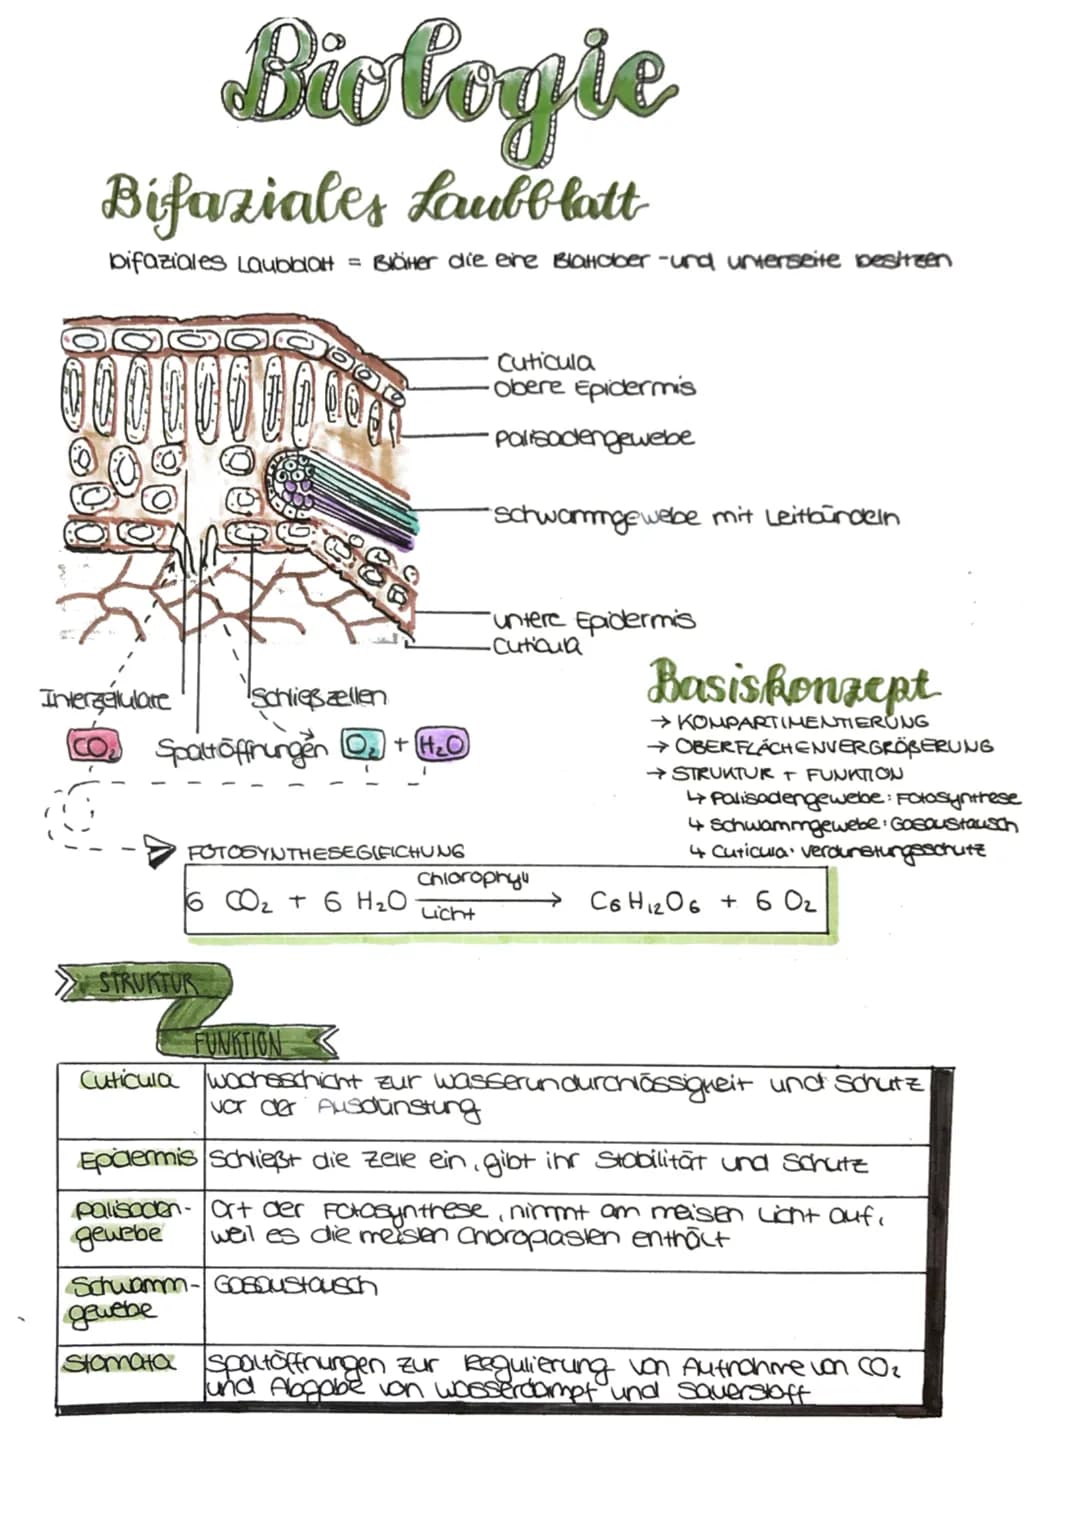 Biologie
Bifaziales Laubblatt
bifaziales Laubblatt = Blätter die eine Blattober -und unterseite besitzen
Cuticula
obere Epidermis
Palisadengewebe
Schwammgewebe mit Leitbündeln
untere Epidermis
Cuticula
Interzellulare
Schließzellen
CO₂
Spaltöffnungen
O₂ + H₂O
Basiskonzept
→ KOMPARTIMENTIERUNG
→ OBERFLÄCHENVERGRÖßERUNG
→ STRUKTUR + FUNKTION
↳ Palisadengewebe: Fotosynthese
↳ Schwammgewebe: Gasaustausch
↳ Cuticula: Verdunstungsschutz
FOTOSYNTHESEGLEICHUNG
Chlorophyll
6 CO₂ + 6 H₂O → C₆H₁₂O₆ + 6 O₂
Licht
STRUKTUR
FUNKTION
Cuticula
Wachsschicht zur Wasserundurchlässigkeit und Schutz
vor der Ausdünstung
Epidermis
Schließt die Zelle ein, gibt ihr Stabilität und Schutz
Palisaden-
gewebe
Ort der Fotosynthese, nimmt am meisen Licht auf,
weil es die meisten Chloroplasten enthält
Schwamm-
gewebe
Gasaustausch
Stomata
Spaltöffnungen zur Regulierung von Aufnahme von CO₂
und Abgabe von Wasserdampf und Sauerstoff